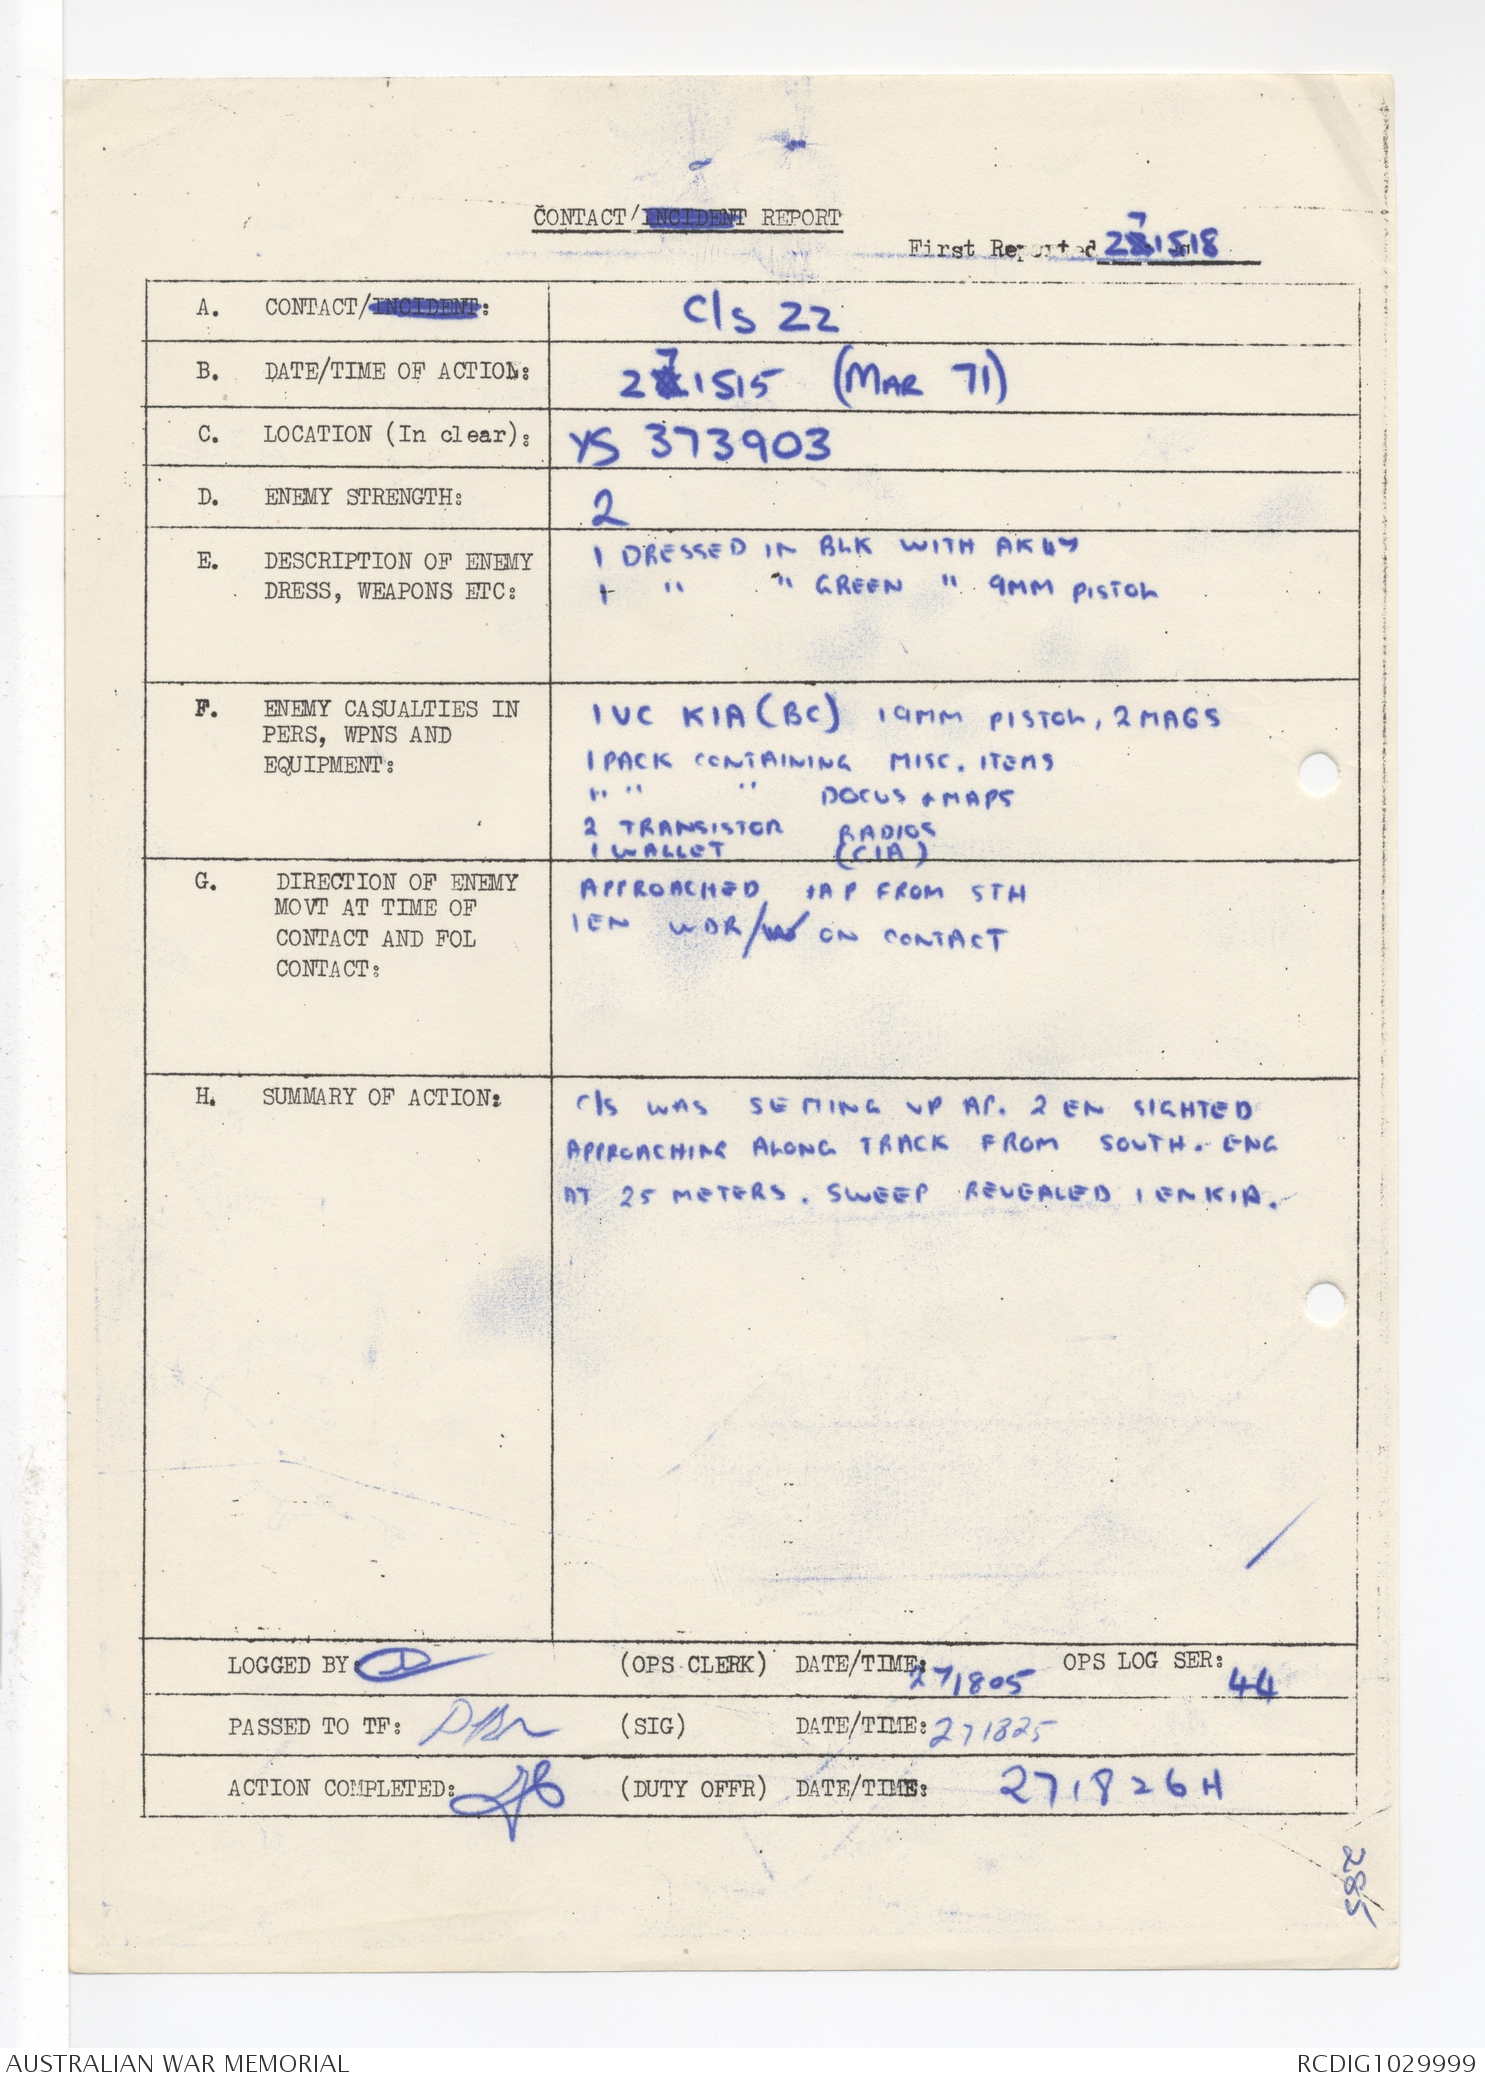 CONTACT/INCIDENT REPORT
First Reported 271518
A. CONTACT/INCIDENT: C/S 22
B. DATE/TIME OF ACTION: 271515 (MAR 71)
C. LOCATION (In clear): YS 373903
D. ENEMY STRENGTH: 2
E. DESCRIPTION OF ENEMY
DRESS, WEAPONS ETC:
1 DRESSED IN BLK WITH AK47
1 " " GREEN " 9MM PISTOL
F. ENEMY CASUALTIES IN
PERS, WPNS AND
EQUIPMENT:
1 VC KIA (BC) 1 9MM PISTOL, 2 MAGS
1 PACK CONTAINING MISC. ITEMS
" " " DOCUS + MAPS
2 TRANSISTOR RADIOS
1 WALLET (CIA)
G. DIRECTION OF ENEMY
MOVT AT TIME OF
CONTACT AND FOL
CONTACT:
APPROACHED AP FROM STH
1 EN WDR/W ON CONTACT
H. SUMMARY OF ACTION:
C/S WAS SETTING UP AP. 2 EN SIGHTED
APPROACHING ALONG TRACK FROM SOUTH. ENG
AT 25 METERS. SWEEP REVEALED 1 EN KIA.
LOGGED BY: (OPS CLERK) DATE/TIME: 271805 OPS LOG SER: 44
PASSED TO TF: (SIG) DATE/TIME: 271825
ACTION COMPLETED: (DUTY OFFR) DATE/TIME: 271826H
285
AUSTRALIAN WAR MEMORIAL
RCDIG1029999